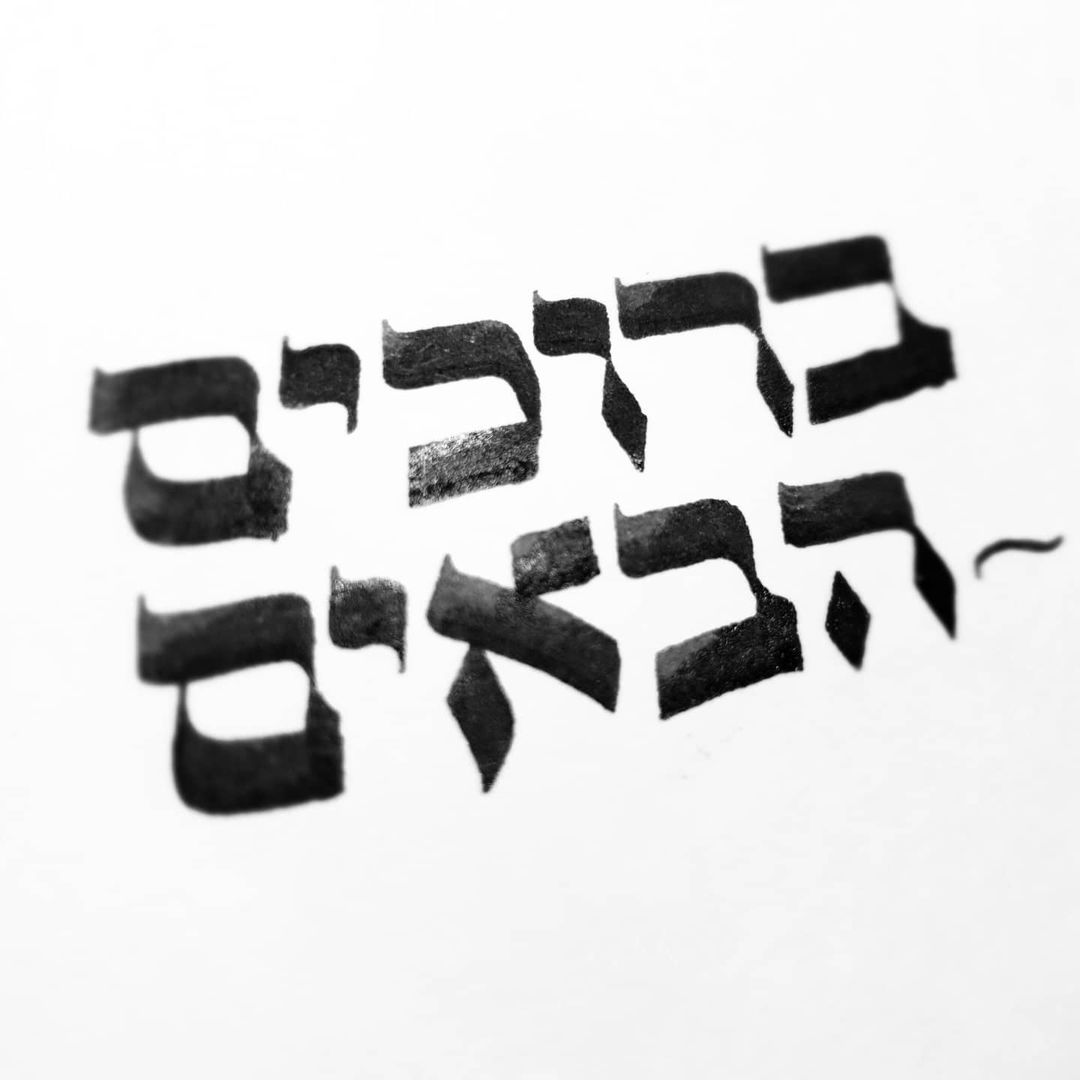 ברוכים
הבאים ~